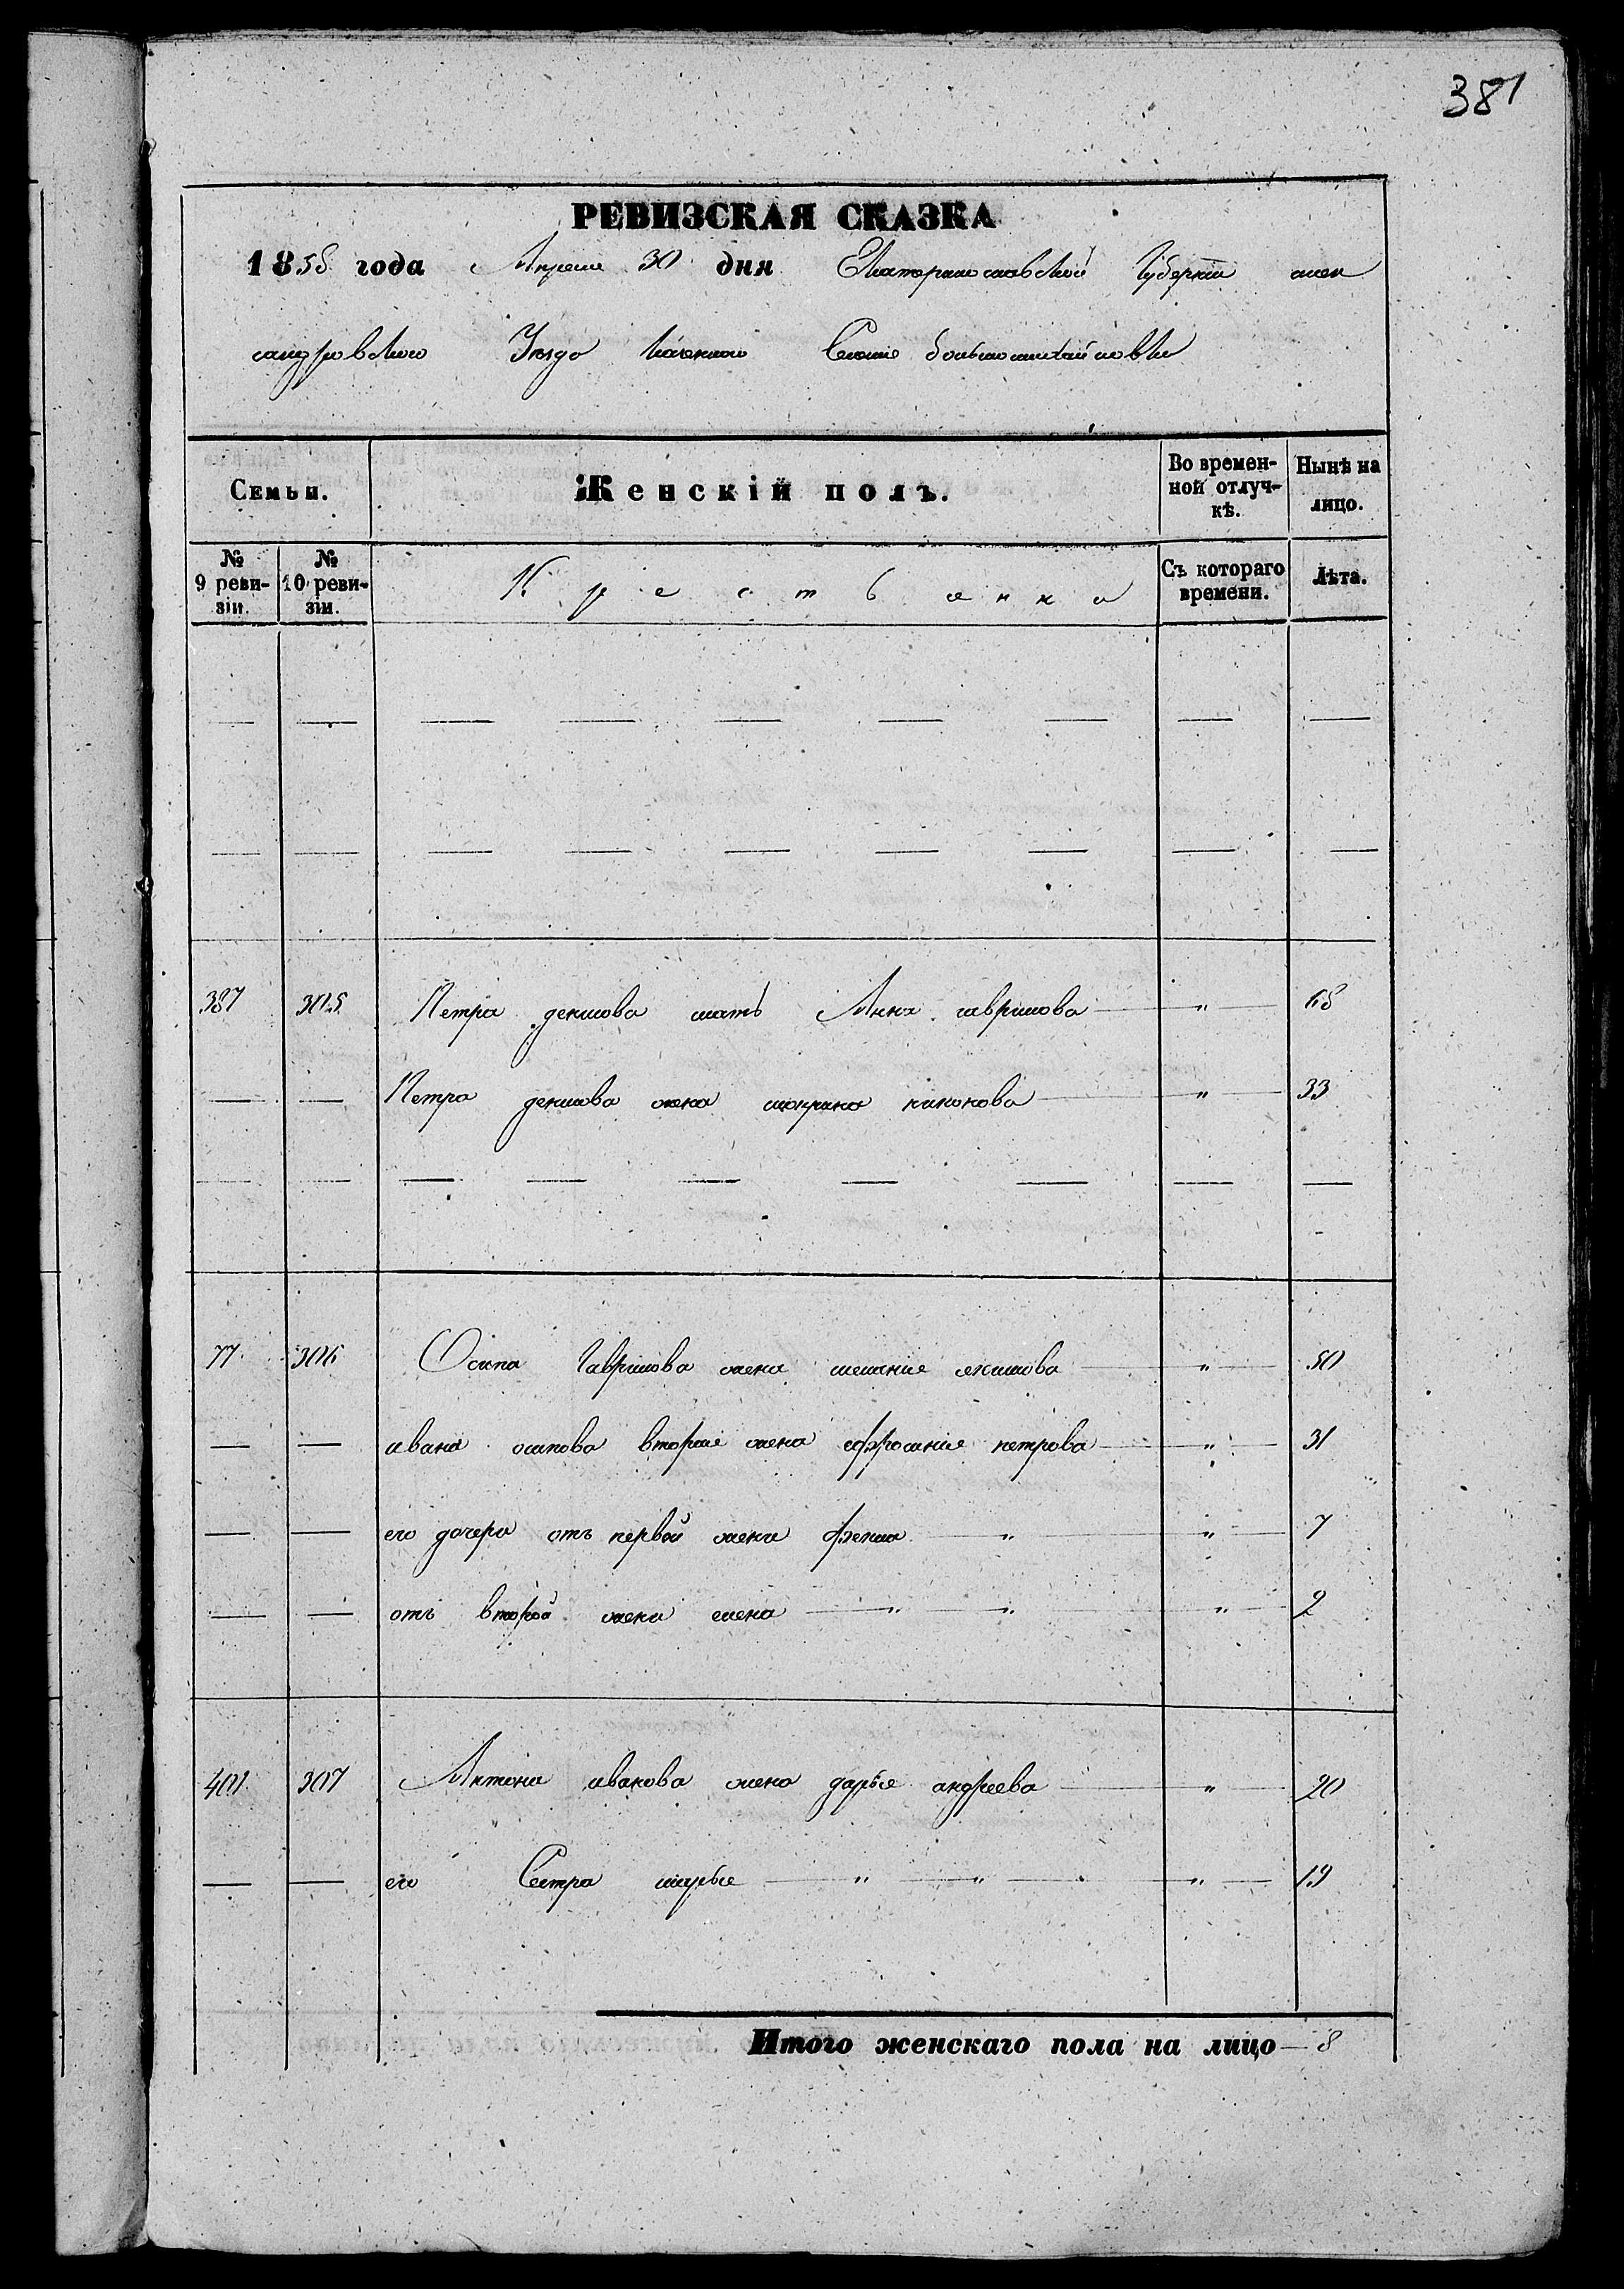 381
РЕВИЗСКАЯ СКАЗКА
1858 года Апреля 30 дня Екатеринославской Губернии алек
сандровского Уезда казенного Селения большомихайловки
Семьи. Женскій полъ. Во времен- Нынѣ на
ной отлуч- лицо.
кѣ.
№ № Крестьянка Съ котораго Лѣта.
9 реви- 10 реви- времени.
зіи. зіи.
387 305 Петра демидова мать Анна гаврилова " 68
Петра жена никонова " 33
77 306 Осипа Гаврилова жена меланія екимова " 50
ивана осипова вторая жена ефросинія петрова " 31
его дочери отъ первой жены " " 7
отъ второй жены елена " " " 2
401 307 Антона иванова жена дарья андреева " 20
его Сестра марья " " " 19
Итого женскаго пола на лицо 8